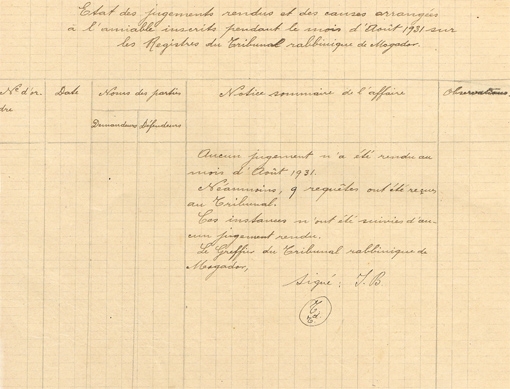 Etat des jugements rendus et des causes arrangées
à l'amiable inscrits pendant le mois d'Août 1931 sur
les Registres du Tribunal rabbinique de Mogador
N° d'or.
dre
Date
Noms des parties
Demandeurs Défendeurs
Notice sommaire de l'affaire
Observations
Aucun jugement n'a été rendu au
mois d'Août 1931.
Néanmoins, 9 requêtes ont été reçues
au Tribunal.
Ces instances n'ont été suivies d'au-
cun jugement rendu.
Le Greffier du Tribunal rabbinique de
Mogador,
signé: I. B.